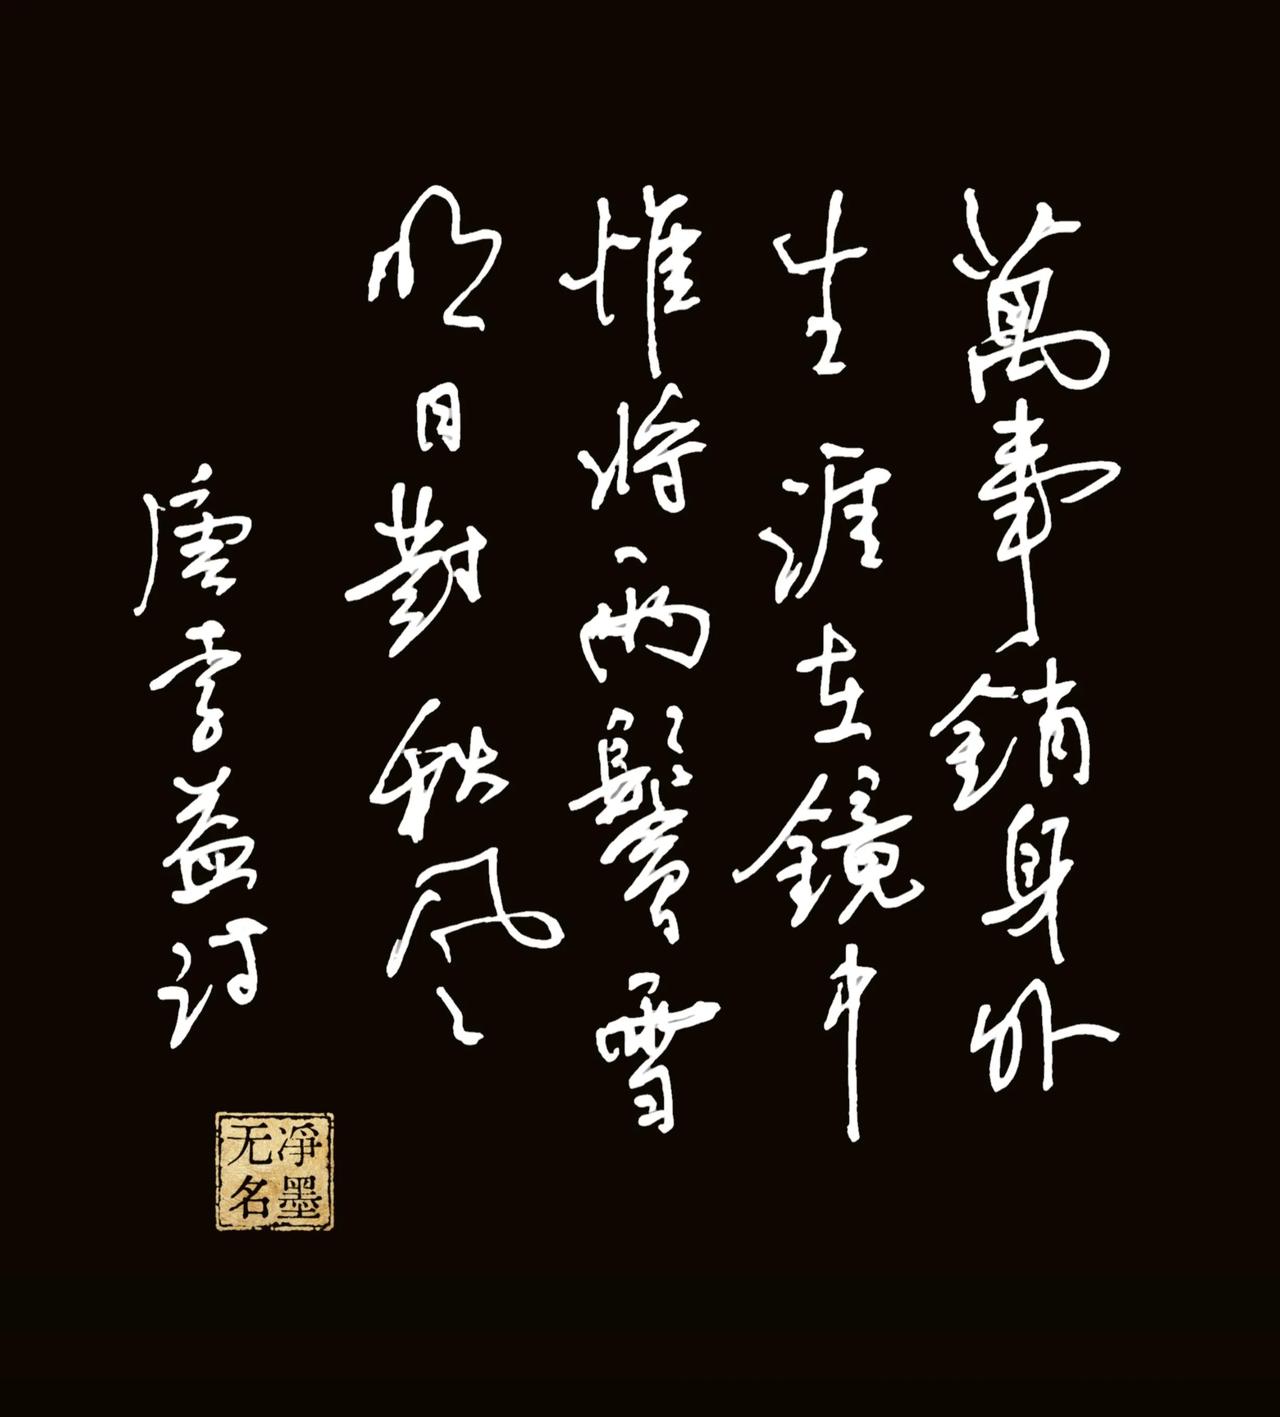 萬事銷身外
生涯在鏡中
惟將兩鬢雪
明日對秋風
唐李益詩
净墨
无名